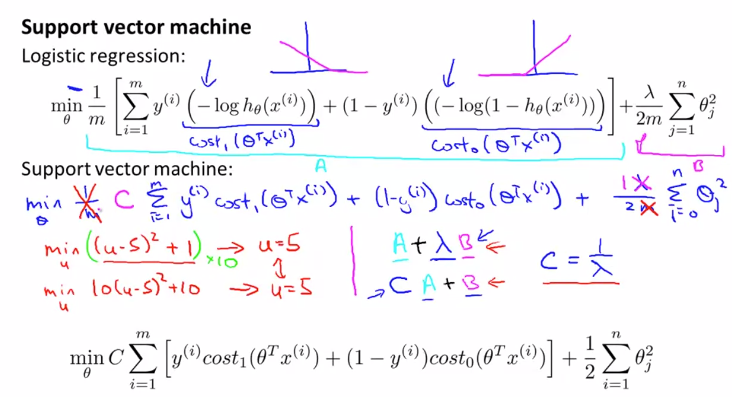 Support vector machine
Logistic regression:
min_θ 1/m [ ∑_{i=1}^{m} y^{(i)} (−log h_θ(x^{(i)})) + (1 − y^{(i)}) ((−log(1 − h_θ(x^{(i)}))) ] + λ/2m ∑_{j=1}^{n} θ_j^2
cost_1(θ^T x^{(i)}) cost_0(θ^T x^{(i)})
A B
Support vector machine:
min_θ 1/m C ∑_{i=1}^{m} y^{(i)} cost_1(θ^T x^{(i)}) + (1-y^{(i)}) cost_0(θ^T x^{(i)}) + 1 λ/2m ∑_{i=0}^{n} θ_j^2
min_u ((u-5)^2 + 1) ×10 → u=5 A + λ B ← C = 1/λ
min_u 10(u-5)^2+10 → u=5 → C A + B ←
min_θ C ∑_{i=1}^{m} [ y^{(i)} cost_1(θ^T x^{(i)}) + (1 − y^{(i)}) cost_0(θ^T x^{(i)}) ] + 1/2 ∑_{i=1}^{n} θ_j^2